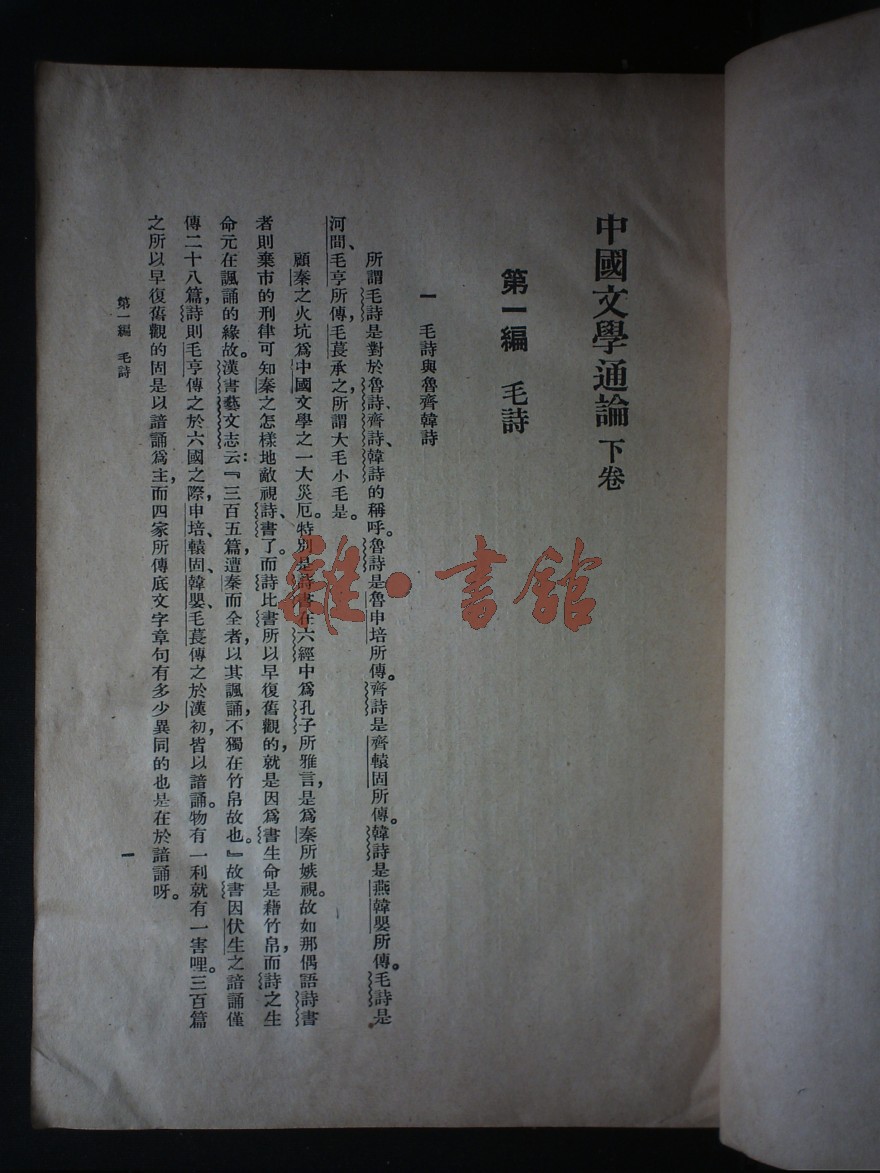 中國文學通論 下卷
第一編 毛詩
一 毛詩與魯齊韓詩
所謂毛詩是對於魯詩、齊詩、韓詩的稱呼。魯詩是魯申培所傳。齊詩是齊轅固所傳。韓詩是燕韓嬰所傳。毛詩是
河間、毛亨所傳,毛萇承之,所謂大毛小毛是。
顧秦之火坑爲中國文學之一大災厄。特別是詩書在六經中爲孔子所雅言,是爲秦所嫉視。故如那偶語詩書
者則棄市的刑律可知秦之怎樣地敵視詩、書了。而詩比書所以早復舊觀的,就是因爲書生命是藉竹帛,而詩之生
命元在諷誦的緣故。漢書藝文志云:『三百五篇,遭秦而全者,以其諷誦,不獨在竹帛故也。』故書因伏生之諳誦僅
傳二十八篇,詩則毛亨傳之於六國之際,申培、轅固、韓嬰、毛萇傳之於漢初,皆以諳誦。物有一利就有一害哩。三百篇
之所以早復舊觀的固是以諳誦爲主,而四家所傳底文字章句有多少異同的也是在於諳誦呀。
第一編 毛詩
一
雜·書館